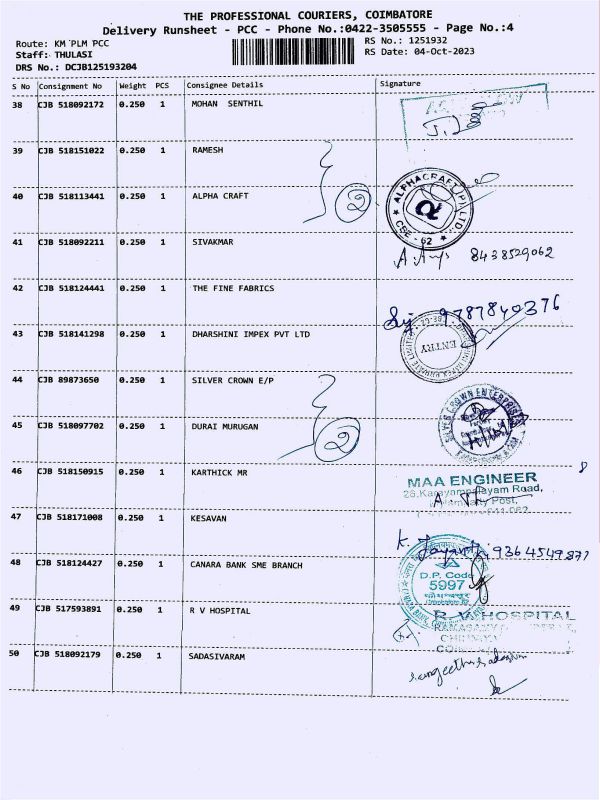 THE PROFESSIONAL COURIERS, COIMBATORE
Delivery Runsheet - PCC - Phone No.:0422-3505555 - Page No.:4
Route: KM PLM PCC
RS No.: 1251932
Staff: THULASI
RS Date: 04-Oct-2023
DRS No.: DCJB125193204
S No Consignment No Weight PCS Consignee Details Signature
38 CJB 518092172 0.250 1 MOHAN SENTHIL
39 CJB 518151022 0.250 1 RAMESH
2
40 CJB 518113441 0.250 1 ALPHA CRAFT
ALPHACRAFT (P) LTD.,
CBE - 62
41 CJB 518092211 0.250 1 SIVAKMAR
8438529062
42 CJB 518124441 0.250 1 THE FINE FABRICS
9787840376
43 CJB 518141298 0.250 1 DHARSHINI IMPEX PVT LTD
ENTRY
44 CJB 89873650 0.250 1 SILVER CROWN E/P
SILVER CROWN ENTERPRISES
45 CJB 518097702 0.250 1 DURAI MURUGAN
2
46 CJB 518150915 0.250 1 KARTHICK MR
MAA ENGINEER
Road,
Post,
47 CJB 518171008 0.250 1 KESAVAN
K.
48 CJB 518124427 0.250 1 CANARA BANK SME BRANCH
D.P. Code
5997
49 CJB 517593891 0.250 1 R V HOSPITAL
R V HOSPITAL
50 CJB 518092179 0.250 1 SADASIVARAM